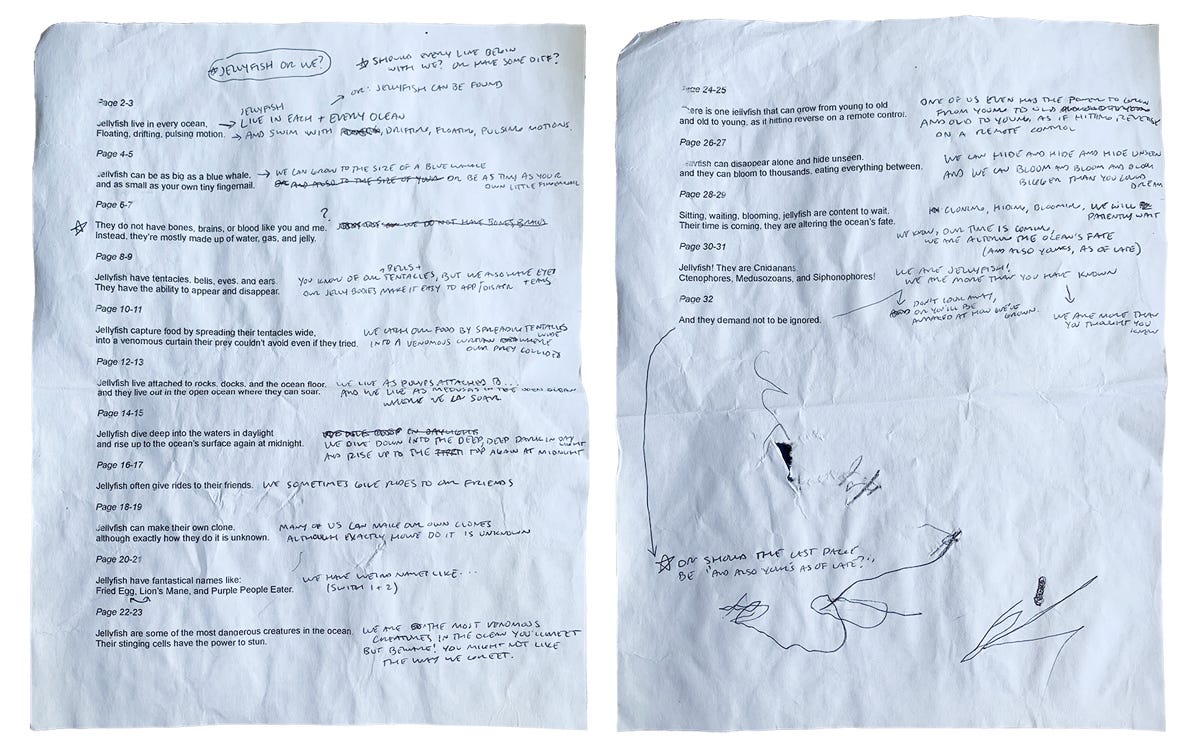 ☆ JELLYFISH OR WE?
☆ SHOULD EVERY LINE BEGIN
WITH WE? OR HAVE SOME DIFF?
OR: JELLYFISH CAN BE FOUND
Page 2-3
JELLYFISH
Jellyfish live in every ocean, → LIVE IN EACH + EVERY OCEAN
Floating, drifting, pulsing motion. → AND SWIM WITH DRIFTING, FLOATING, PULSING MOTIONS.
Page 4-5
Jellyfish can be as big as a blue whale. → WE CAN GROW TO THE SIZE OF A BLUE WHALE
and as small as your own tiny fingernail. OR AND ALSO TO THE SIZE OF YOUR OR BE AS TINY AS YOUR
OWN LITTLE FINGERNAIL
Page 6-7
?
☆ They do not have bones, brains, or blood like you and me. WE DO NOT HAVE BONES, BRAINS
Instead, they're mostly made up of water, gas, and jelly.
Page 8-9
BELLS +
Jellyfish have tentacles, bells, eyes, and ears. YOU KNOW OF OUR TENTACLES, BUT WE ALSO HAVE EYES
+ EARS
They have the ability to appear and disappear. OUR JELLY BODIES MAKE IT EASY TO APP/DISAPP.
Page 10-11
Jellyfish capture food by spreading their tentacles wide, WE CATCH OUR FOOD BY SPREADING TENTACLES
WIDE
into a venomous curtain their prey couldn't avoid even if they tried. INTO A VENOMOUS CURTAIN WHERE
OUR PREY COLLIDES
Page 12-13
Jellyfish live attached to rocks, docks, and the ocean floor. WE LIVE AS POLYPS ATTACHED TO...
and they live out in the open ocean where they can soar. AND WE LIVE AS MEDUSAS IN THE OPEN OCEAN
WHERE WE CAN SOAR
Page 14-15
WE DIVE DEEP IN DAYLIGHT
Jellyfish dive deep into the waters in daylight WE DIVE DOWN INTO THE DEEP, DEEP DARK IN DAY
LIGHT
and rise up to the ocean's surface again at midnight. AND RISE UP TO THE TOP AGAIN AT MIDNIGHT
Page 16-17
Jellyfish often give rides to their friends. WE SOMETIMES GIVE RIDES TO OUR FRIENDS
Page 18-19
Jellyfish can make their own clone, MANY OF US CAN MAKE OUR OWN CLONES
although exactly how they do it is unknown. ALTHOUGH EXACTLY HOW WE DO IT IS UNKNOWN
Page 20-21
Jellyfish have fantastical names like: WE HAVE WEIRD NAMES LIKE...
Fried Egg, Lion's Mane, and Purple People Eater. (SWITCH 1+2)
Page 22-23
Jellyfish are some of the most dangerous creatures in the ocean. WE ARE THE MOST VENOMOUS
Their stinging cells have the power to stun. CREATURES IN THE OCEAN YOU'LL MEET
BUT BEWARE! YOU MIGHT NOT LIKE
THE WAY WE GREET.
Page 24-25
There is one jellyfish that can grow from young to old ONE OF US EVEN HAS THE POWER TO GROW
and old to young, as it hitting reverse on a remote control. FROM YOUNG TO OLD
AND OLD TO YOUNG, AS IF HITTING REVERSE
ON A REMOTE CONTROL
Page 26-27
Jellyfish can disappear alone and hide unseen. WE CAN HIDE AND HIDE AND HIDE UNSEEN
and they can bloom to thousands, eating everything between. AND WE CAN BLOOM AND BLOOM AND BLOOM
BIGGER THAN YOU COULD
DREAM
Page 28-29
Sitting, waiting, blooming, jellyfish are content to wait. CLONING, HIDING, BLOOMING, WE WILL
PATIENTLY WAIT
Their time is coming, they are altering the ocean's fate. WE KNOW, OUR TIME IS COMING,
WE ARE ALTERING THE OCEAN'S FATE
(AND ALSO YOURS, AS OF LATE)
Page 30-31
Jellyfish! They are Cnidarians. WE ARE JELLYFISH!
Ctenophores, Medusozoans, and Siphonophores! WE ARE MORE THAN YOU HAVE KNOWN
Page 32
And they demand not to be ignored. DON'T LOOK AWAY,
OR YOU'LL BE
AMAZED AT HOW WE'VE
GROWN.
WE ARE MORE THAN
YOU THOUGHT YOU
KNEW
☆ OR SHOULD THE LAST PAGE
BE "AND ALSO YOURS AS OF LATE?",